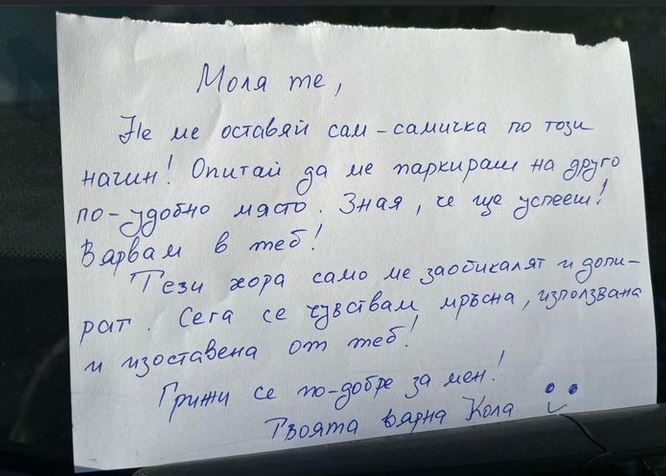 Моля те,
Не ме оставяй сам-самичка по този
начин! Опитай да ме паркираш на друго
по-удобно място. Зная, че ще успееш!
Вярвам в теб!
Тези хора само ме заобикалят и допи-
рат. Сега се чувствам мръсна, използвана
и изоставена от теб!
Грижи се по-добре за мен!
Твоята вярна Кола